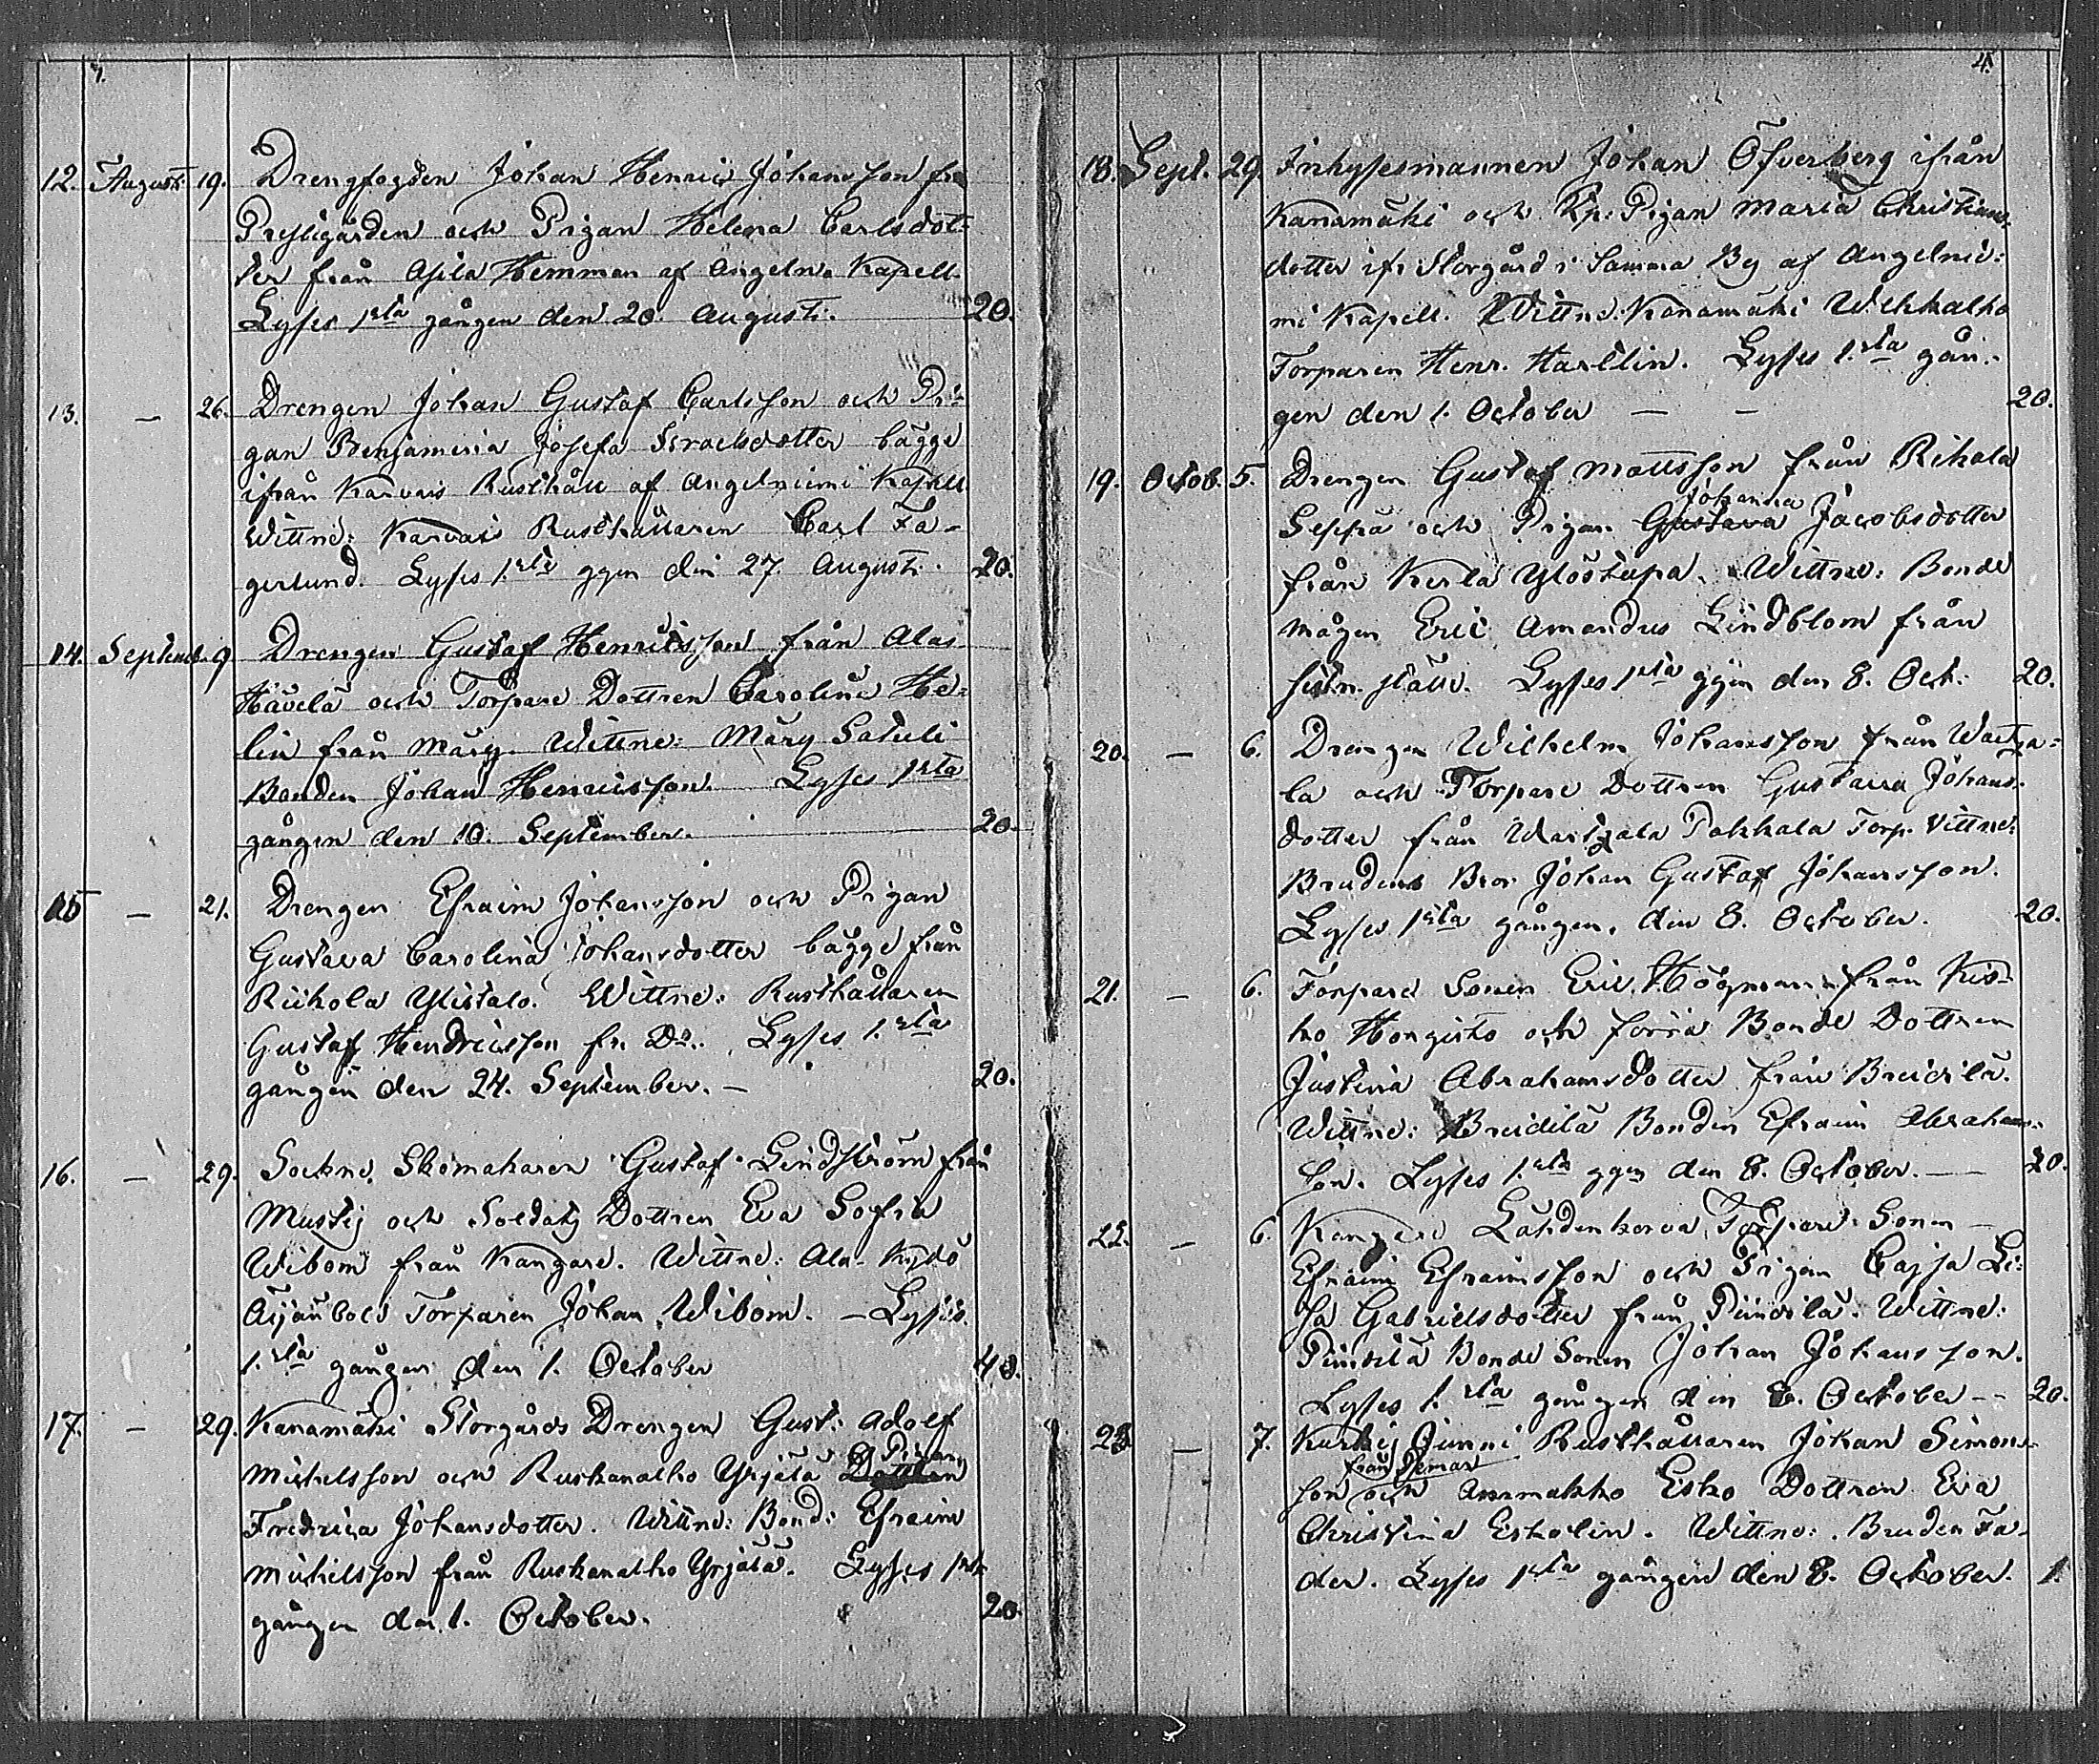 12. Augusti 19. Drengfogden Johan Henric Johansson fr.
Prestgården och Pigan Helena Carlsdot-
ter från Asila Hemman af Angeln. Kapell.
Lyses 1sta gången den 20. Augusti. 20.
13. — 26. Drengen Johan Gustaf Carlsson och Pi-
gan Benjamina Josefa Israelsdotter bägge
ifrån Karvais Rusthåll af Angelniemi Kapell
Wittne: Karvais Rusthållaren Carl Fa-
gerlund. Lyses 1.sta ggen den 27. Augusti. 20.
14. Septemb. 9 Drengen Gustaf Henricsson från Alas
Hävelä och Torpare Dottren Carolina He-
lin från Märy. Wittne: Märy Satuli
Bonden Johan Henricsson. Lyses 1sta
gången den 10. September. 20.
15 — 21. Drengen Efraim Johansson och Pigan
Gustava Carolina Johansdotter bägge från
Riikola Ylistalo. Wittne: Rusthållaren
Gustaf Hendricsson fr. Do. Lyses 1.sta
gången den 24. September. — 20.
16. — 29. Sockne Skomakaren Gustaf Lindström från
Mustij och Soldats Dottren Eva Sofia
Wibom från Kangare. Wittne: Ala-Kydö
Torparen Johan Wibom. — Lyses
1.sta gången den 1. October 40.
17. — 29. Kanamäki Storgårds Drengen Gust: Adolf
Michelsson och Ruskanalho Yrjälä Pigan
Fredrica Johansdotter. Wittne: Bond: Efraim
Michelsson från Ruskanalho Yrjälä. Lyses 1sta
gången den 1. October. 20.
4.
18. Sept. 29 Inhysesmannen Johan Öfverberg ifrån
Kanamäki och Kp: Pigan Maria Christians-
dotter ifr. Storgård i Samma By af Angelnie-
mi Kapell. Wittne: Kanamäki
Torparen Henr. Harllin. Lyses 1.sta gån-
gen den 1. October — — 20.
19. Octob. 5. Drengen Gustaf Mattsson från Rikala
Seppä och Pigan Gustava Johanna Jacobsdotter
från Kerla Ylöstupa. Wittne: Bonde
mågen Eric Amandus Lindblom från
ställe. Lyses 1sta ggen den 8. Oct: 20.
20. — 6. Drengen Wilhelm Johansson från Wartsa-
la och Torpare Dottren Gustava Johans-
dotter från Wartsala Pakkala Torp. Vittne:
Brudens Bror Johan Gustaf Johansson.
Lyses 1sta gången. den 8. October. 20.
21. — 6. Torpare Sonen Eric Högman från Kis-
ko Hongisto och förra Bonde Dottren
Justina Abrahamsdotter från Breidilä.
Wittne: Breidilä Bonden Efraim Abrahams-
son. Lyses 1.sta ggen den 8. October. — 20.
22. — 6. Kangare Lähdenkorva Torpare Sonen
Efraim Efraimsson och Pigan Cajsa Li-
sa Gabrielsdotter från Pindilä. Wittne:
Pindilä Bonde Sonen Johan Johansson.
Lyses 1.sta gången den 8. October — 20.
23 — 7. Junni Rusthållaren Johan Simons-
son från Pemar och Esko Dottren Eva
Christina Eskolin. Wittne: Bruden Fa-
der. Lyses 1sta gången den 8. October. 1.